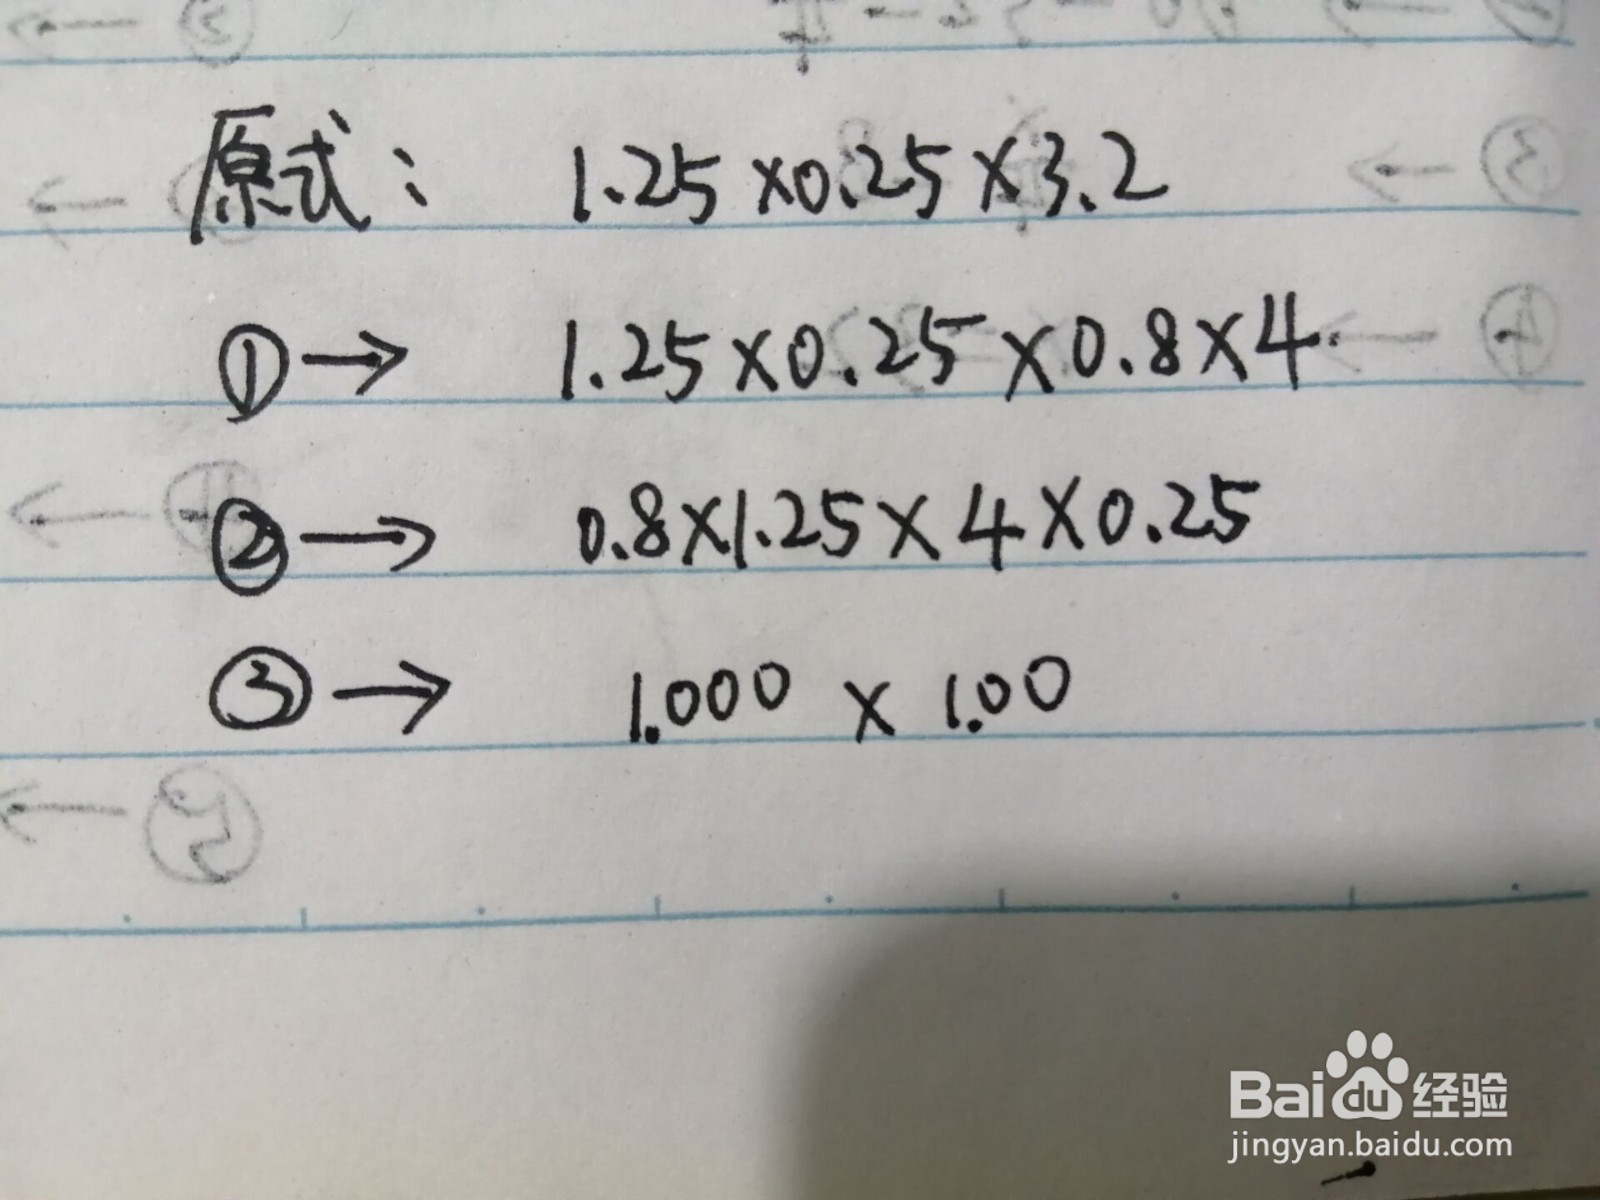 原式： 1.25×0.25×3.2
①→ 1.25×0.25×0.8×4
②→ 0.8×1.25×4×0.25
③→ 1.000×1.00
Baidu经验
jingyan.baidu.com